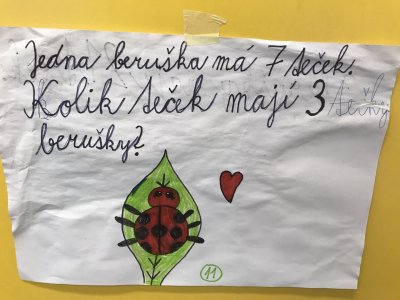 Jedna beruška má 7 teček.
Kolik teček mají 3
berušky?
11